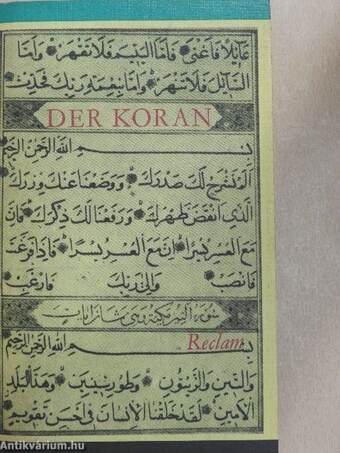 عَآئِلًا فَاَغْنٰى فَاَمَّا الْيَتِيْمَ فَلَا تَقْهَرْ وَاَمَّا
السَّآئِلَ فَلَا تَنْهَرْ وَاَمَّا بِنِعْمَةِ رَبِّكَ فَحَدِّثْ
DER KORAN
بِسْمِ اللّٰهِ الرَّحْمٰنِ الرَّحِيْمِ
اَلَمْ نَشْرَحْ لَكَ صَدْرَكَ وَوَضَعْنَا عَنْكَ وِزْرَكَ
الَّذِيْ اَنْقَضَ ظَهْرَكَ وَرَفَعْنَا لَكَ ذِكْرَكَ فَاِنَّ
مَعَ الْعُسْرِ يُسْرًا اِنَّ مَعَ الْعُسْرِ يُسْرًا فَاِذَا فَرَغْتَ
فَانْصَبْ وَاِلٰى رَبِّكَ فَارْغَبْ
سورة التين مكية وهي ثمان ايات
بِسْمِ اللّٰهِ الرَّحْمٰنِ الرَّحِيْمِ
Reclam
وَالتِّيْنِ وَالزَّيْتُوْنِ وَطُوْرِ سِيْنِيْنَ وَهٰذَا الْبَلَدِ
الْاَمِيْنِ لَقَدْ خَلَقْنَا الْاِنْسَانَ فِيْ اَحْسَنِ تَقْوِيْمٍ
Antikvárium.hu